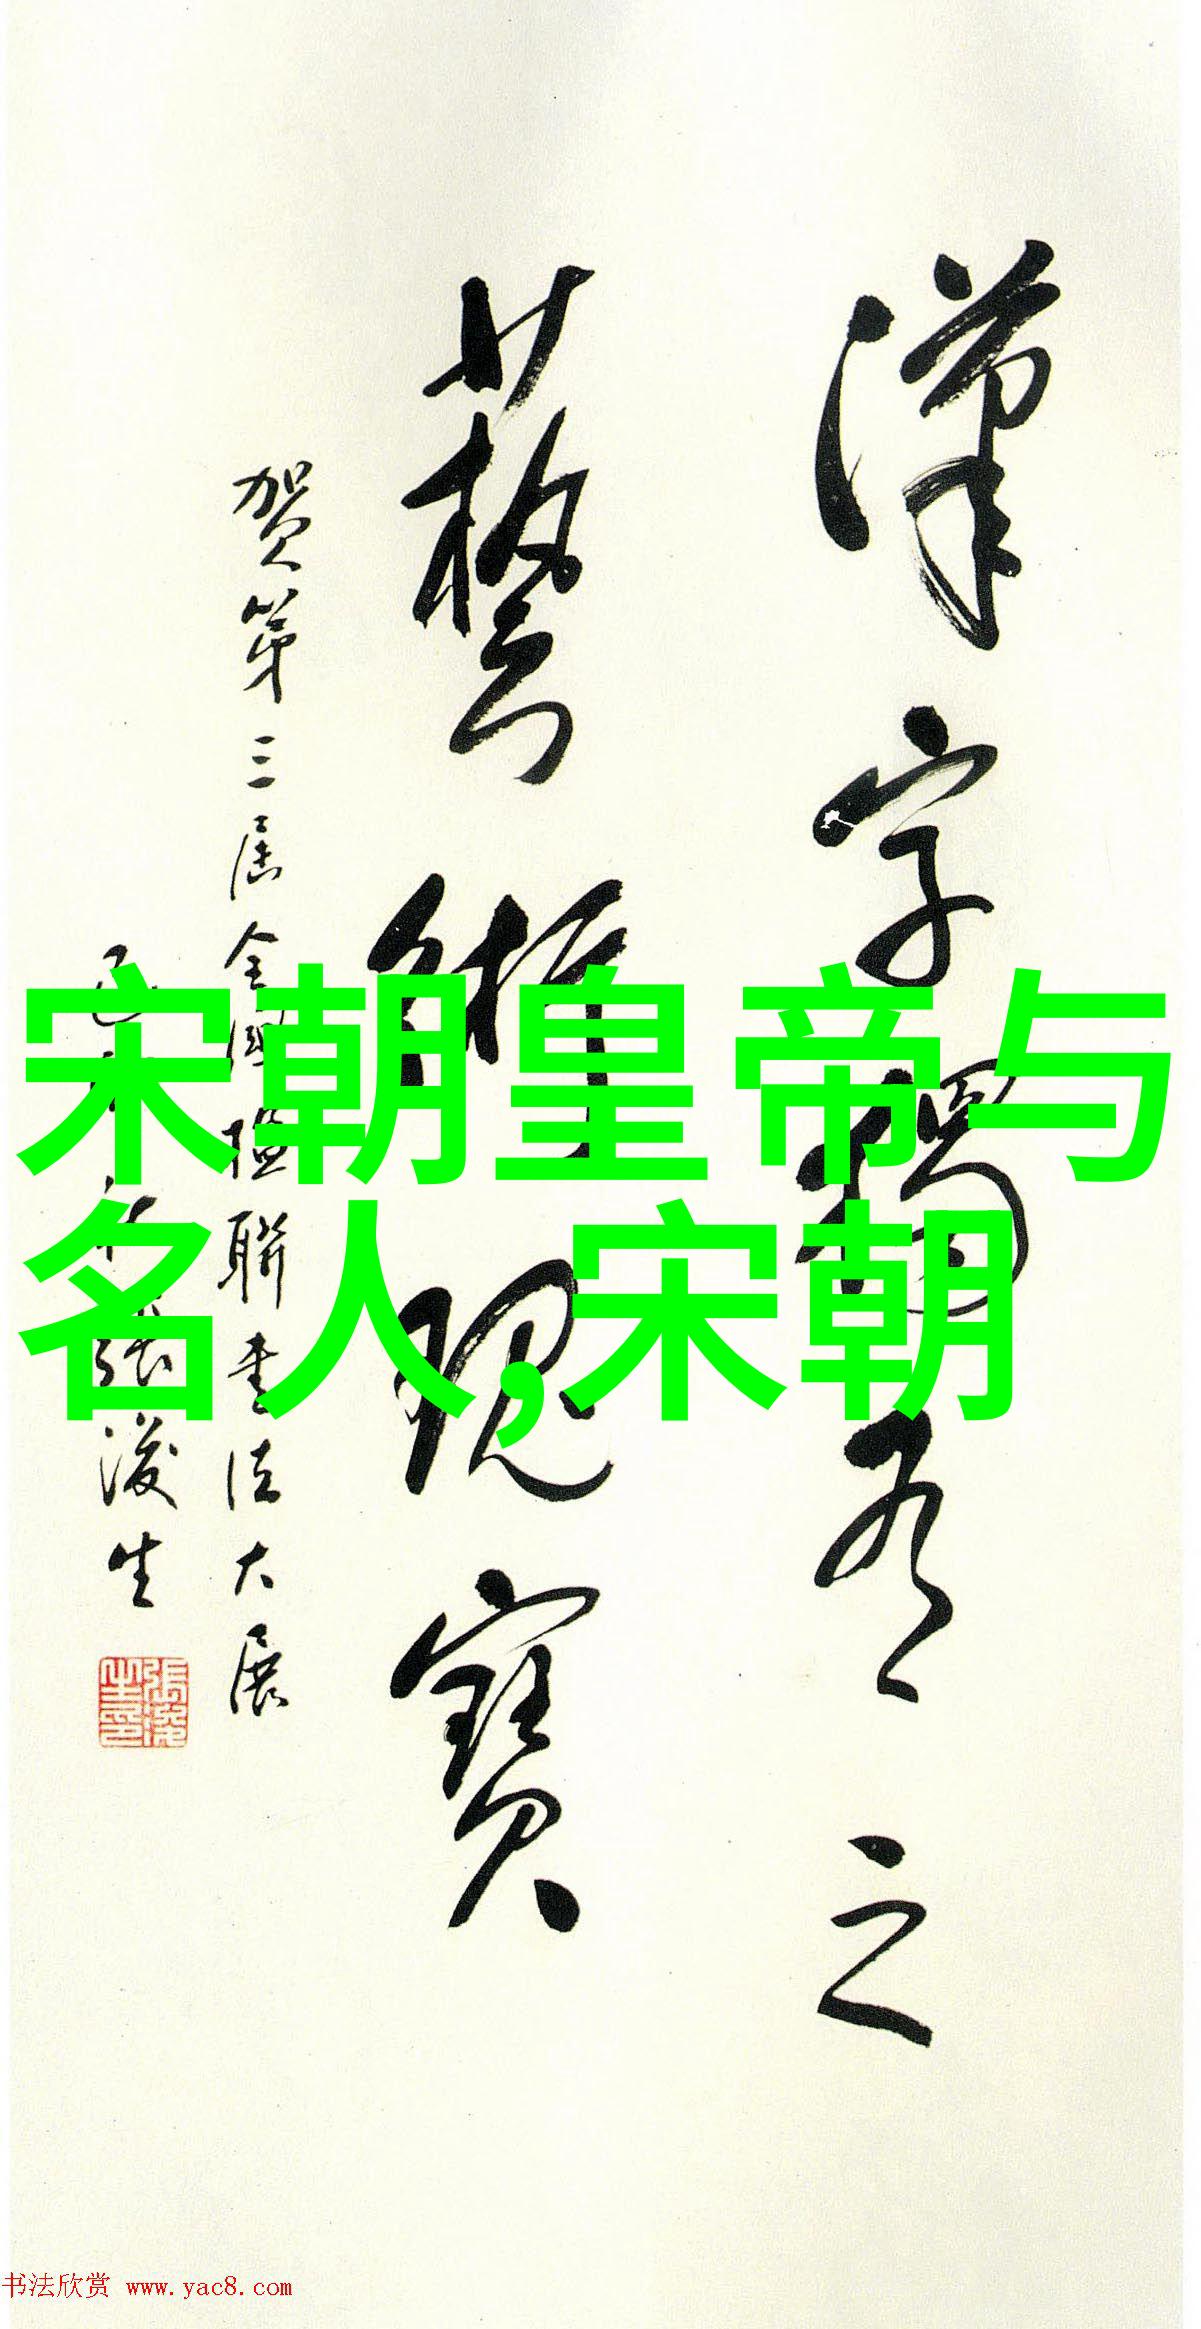 漢字獨有之
藝術瑰寶
賀第三届全國楹聯書法大展
張浚生
宋朝皇帝与
名人,宋朝
书法欣赏 www.yac8.com